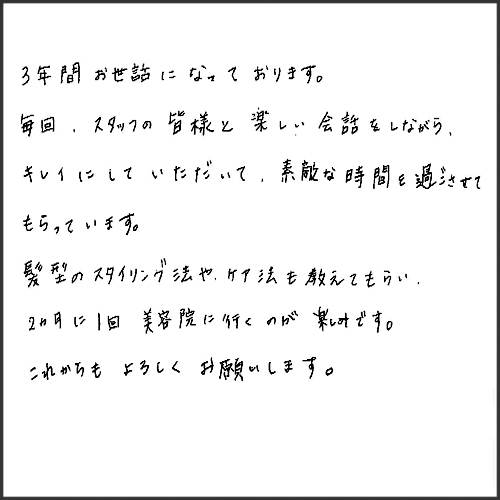 3年間お世話になっております。
毎回、スタッフの皆様と楽しい会話をしながら、
キレイにしていただいて、素敵な時間を過ごさせて
もらっています。
髪型のスタイリング法や、ケア法も教えてもらい、
2ヶ月に1回美容院に行くのが楽しみです。
これからもよろしくお願いします。